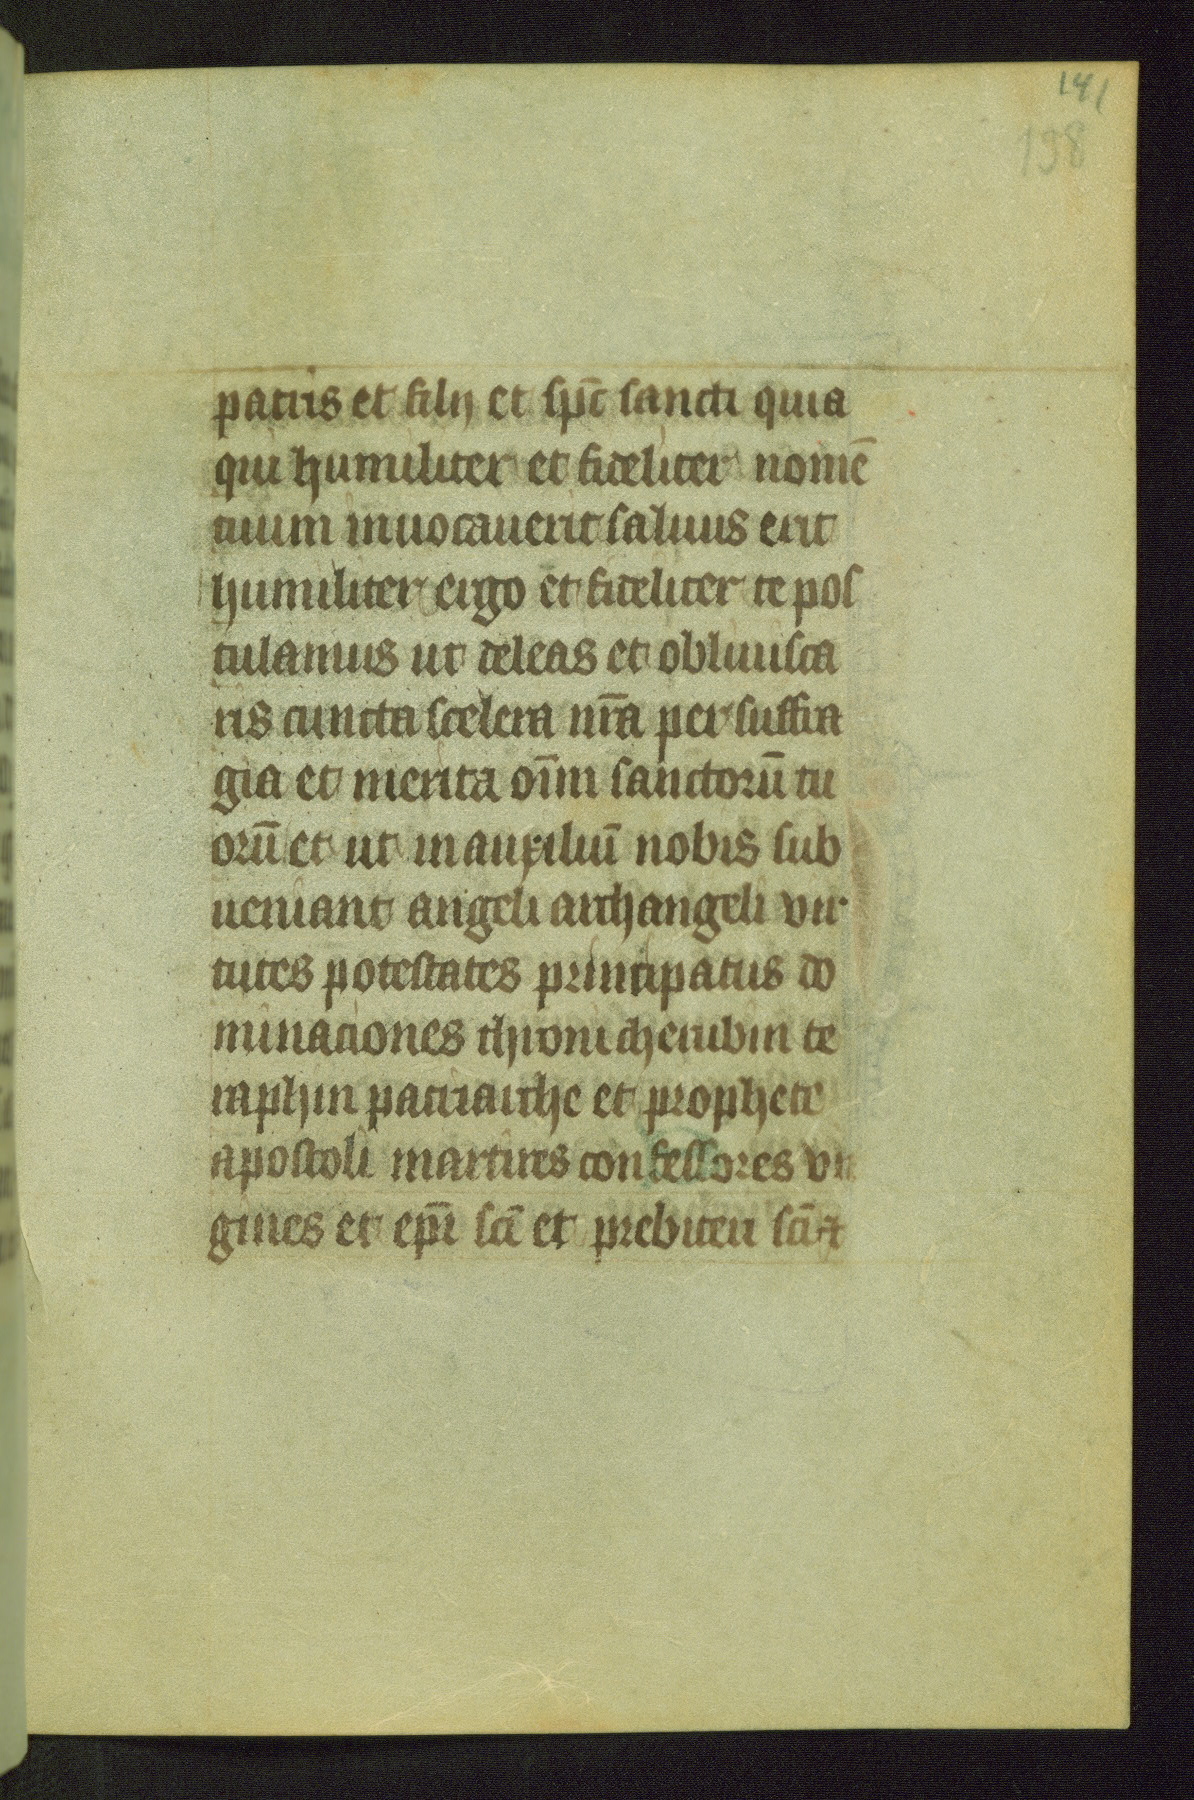 141
138
patris et filij et spc̄ sancti quia
qui humiliter et fideliter nomē
tuum inuocauerit saluus erit
humiliter ergo et fideliter te pos
tulamus ut deleas et obliuisca
ris cuncta scelera nr̄a per suffra
gia et merita oīm sanctorū tu
orū et ut in auxiliū nobis sub
ueniant angeli archangeli vir
tutes potestates principatus do
minationes throni cherubin se
raphin patriarche et prophete
apostoli martires confessores vir
gines et ep̄i scī et prebiteri scī ⁊